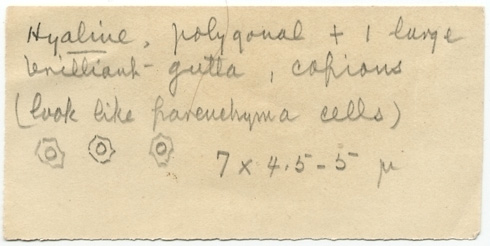 Hyaline, polygonal + 1 large
brilliant gutta, copious
(look like parenchyma cells)
7 x 4.5-5 µ